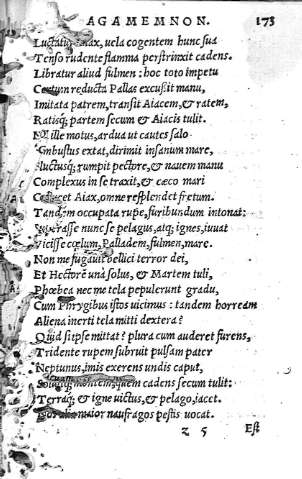 AGAMEMNON. 173
Luctatur Aiax, uela cogentem hunc sua
Tenso rudente flamma perstrinxit cadens.
Libratur aliud fulmen: hoc toto impetu
Certum reducta Pallas excußit manu,
Imitata patrem, transit Aiacem, & ratem,
Ratisq; partem secum & Aiacis tulit.
Nil ille motus, ardua ut cautes salo
Ambustus extat, dirimit insanum mare,
Fluctusq; rumpit pectore, & nauem manu
Complexus in se traxit, & cæco mari
Aiax, omne resplendet fretum.
Tandem occupata rupe, furibundum intonat:
Superasse nunc se pelagus, atq; ignes, iuuat
Vicisse cœlum, Palladem, fulmen, mare.
Non me fugauit bellici terror dei,
Et Hectorē unà solus, & Martem tuli,
Phœbea nec me tela pepulerunt gradu,
Cum Phrygibus istos uicimus: tandem horream
Aliena inerti tela mitti dextera?
Quid si ipse mittat? plura cum auderet furens,
Tridente rupem subruit pulsam pater
Neptunus, imis exerens undis caput,
Soluitq; montem, quem cadens secum tulit:
Terraq; & igne uictus, & pelago, iacet.
alia maior naufragos pestis uocat.
z 5 Est